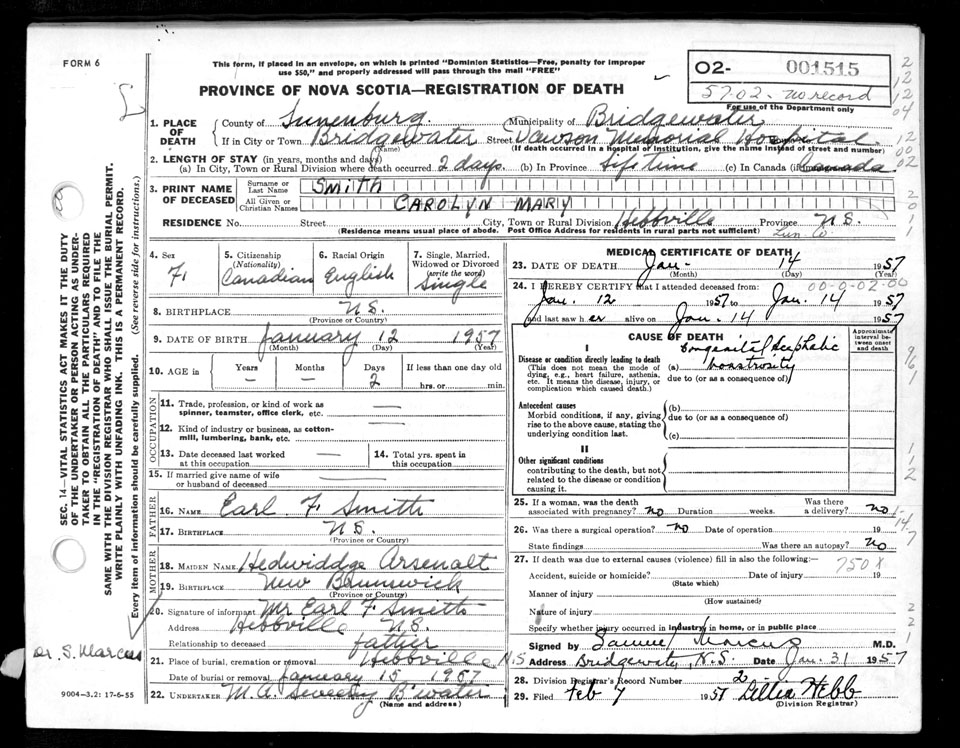 FORM 6
This form, if placed in an envelope, on which is printed "Dominion Statistics—Free, penalty for improper
use $50," and properly addressed will pass through the mail "FREE"
02- 001515
57.02 - no record
For use of the Department only
PROVINCE OF NOVA SCOTIA—REGISTRATION OF DEATH
1. PLACE OF DEATH County of Lunenburg Municipality of Bridgewater
If in City or Town Bridgewater Street Dawson Memorial Hospital
(Name) (If death occurred in a hospital or institution, give the name instead of street and number)
2. LENGTH OF STAY (in years, months and days)
(a) In City, Town or Rural Division where death occurred 2 days. (b) In Province Lifetime (c) In Canada (if Canada
3. PRINT NAME OF DECEASED
Surname or Last Name SMITH
All Given or Christian Names CAROLYN MARY
RESIDENCE No. Street City, Town or Rural Division Hebbville Province N.S.
(Residence means usual place of abode. Post Office Address for residents in rural parts not sufficient) Lun. Co.
4. Sex F.
5. Citizenship (Nationality) Canadian
6. Racial Origin English
7. Single, Married, Widowed or Divorced (write the word) Single
8. BIRTHPLACE N.S.
(Province or Country)
9. DATE OF BIRTH January 12 1957
(Month) (Day) (Year)
10. AGE in Years — Months — Days 2 If less than one day old
hrs. or min.
OCCUPATION
11. Trade, profession, or kind of work as
spinner, teamster, office clerk, etc. —
12. Kind of industry or business, as cotton-
mill, lumbering, bank, etc. —
13. Date deceased last worked
at this occupation —
14. Total yrs. spent in
this occupation —
15. If married give name of wife
or husband of deceased
FATHER
16. NAME Earl F. Smith
17. BIRTHPLACE N.S.
(Province or Country)
MOTHER
18. MAIDEN NAME Hedwiddge Arsenalt
19. BIRTHPLACE New Brunswick
(Province or Country)
20. Signature of informant Mr Earl F Smith
Address Hebbville N.S.
Relationship to deceased father
21. Place of burial, cremation or removal Hebbville N.S
Date of burial or removal January 15 1957
22. UNDERTAKER M.A. Sweeney B'water
(Name and address)
MEDICAL CERTIFICATE OF DEATH
23. DATE OF DEATH Jan- 14 1957
(Month) (Day) (Year)
24. I HEREBY CERTIFY that I attended deceased from: 00-0-02-00
Jan. 12 1957 to Jan. 14 1957
and last saw her alive on Jan. 14 1957
CAUSE OF DEATH
Approximate interval between onset and death
I
Disease or condition directly leading to death
(This does not mean the mode of
dying, e.g., heart failure, asthenia,
etc. It means the disease, injury, or
complication which caused death.)
(a) Congenital Acephalic
Monstrosity
due to (or as a consequence of)
Antecedent causes
Morbid conditions, if any, giving
rise to the above cause, stating the
underlying condition last.
(b)
due to (or as a consequence of)
(c)
II
Other significant conditions
contributing to the death, but not
related to the disease or condition
causing it.
25. If a woman, was the death
associated with pregnancy? no Duration weeks. Was there a delivery? no
26. Was there a surgical operation? no Date of operation 19
State findings Was there an autopsy? no
27. If death was due to external causes (violence) fill in also the following: 750X
Accident, suicide or homicide? Date of injury 19
(State which)
Manner of injury
(How sustained)
Nature of injury
Specify whether injury occurred in industry, in home, or in public place
Signed by Samuel Marcus M.D.
Address Bridgewater N.S. Date Jan. 31 1957
28. Division Registrar's Record Number 2
29. Filed Feb 7 1957 Lillia Hebb
(Division Registrar)
SEC. 14—VITAL STATISTICS ACT MAKES IT THE DUTY
OF THE UNDERTAKER OR PERSON ACTING AS UNDER-
TAKER TO OBTAIN ALL THE PARTICULARS REQUIRED
IN THE "REGISTRATION OF DEATH" AND TO FILE THE
SAME WITH THE DIVISION REGISTRAR WHO SHALL ISSUE THE BURIAL PERMIT.
WRITE PLAINLY WITH UNFADING INK. THIS IS A PERMANENT RECORD.
Every item of information should be carefully supplied. (See reverse side for instructions.)
Dr. S. Marcus
9004-3.2: 17-6-55
2
12
12
04
12
00
02
2
0
1
1
9
6
1
1
1
2
1-
14
7
2
2
1